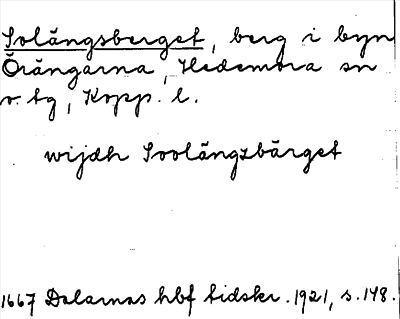 Solängsberget, berg i byn
Örängarna, Hedemora sn
o. tg, Kopp. l.
wijdh Soolängzbärget
1667 Dalarnas hbf tidskr. 1921, s. 148.